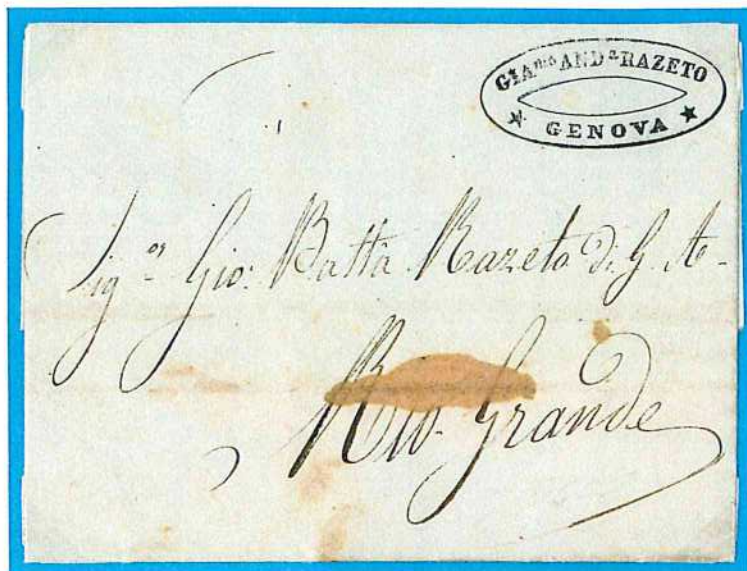 Gᵃ Aᵐᵒ ANDᵃ RAZETO
GENOVA
Sigᵒʳ Gio: Batta Razeto di G. A.
Rio Grande